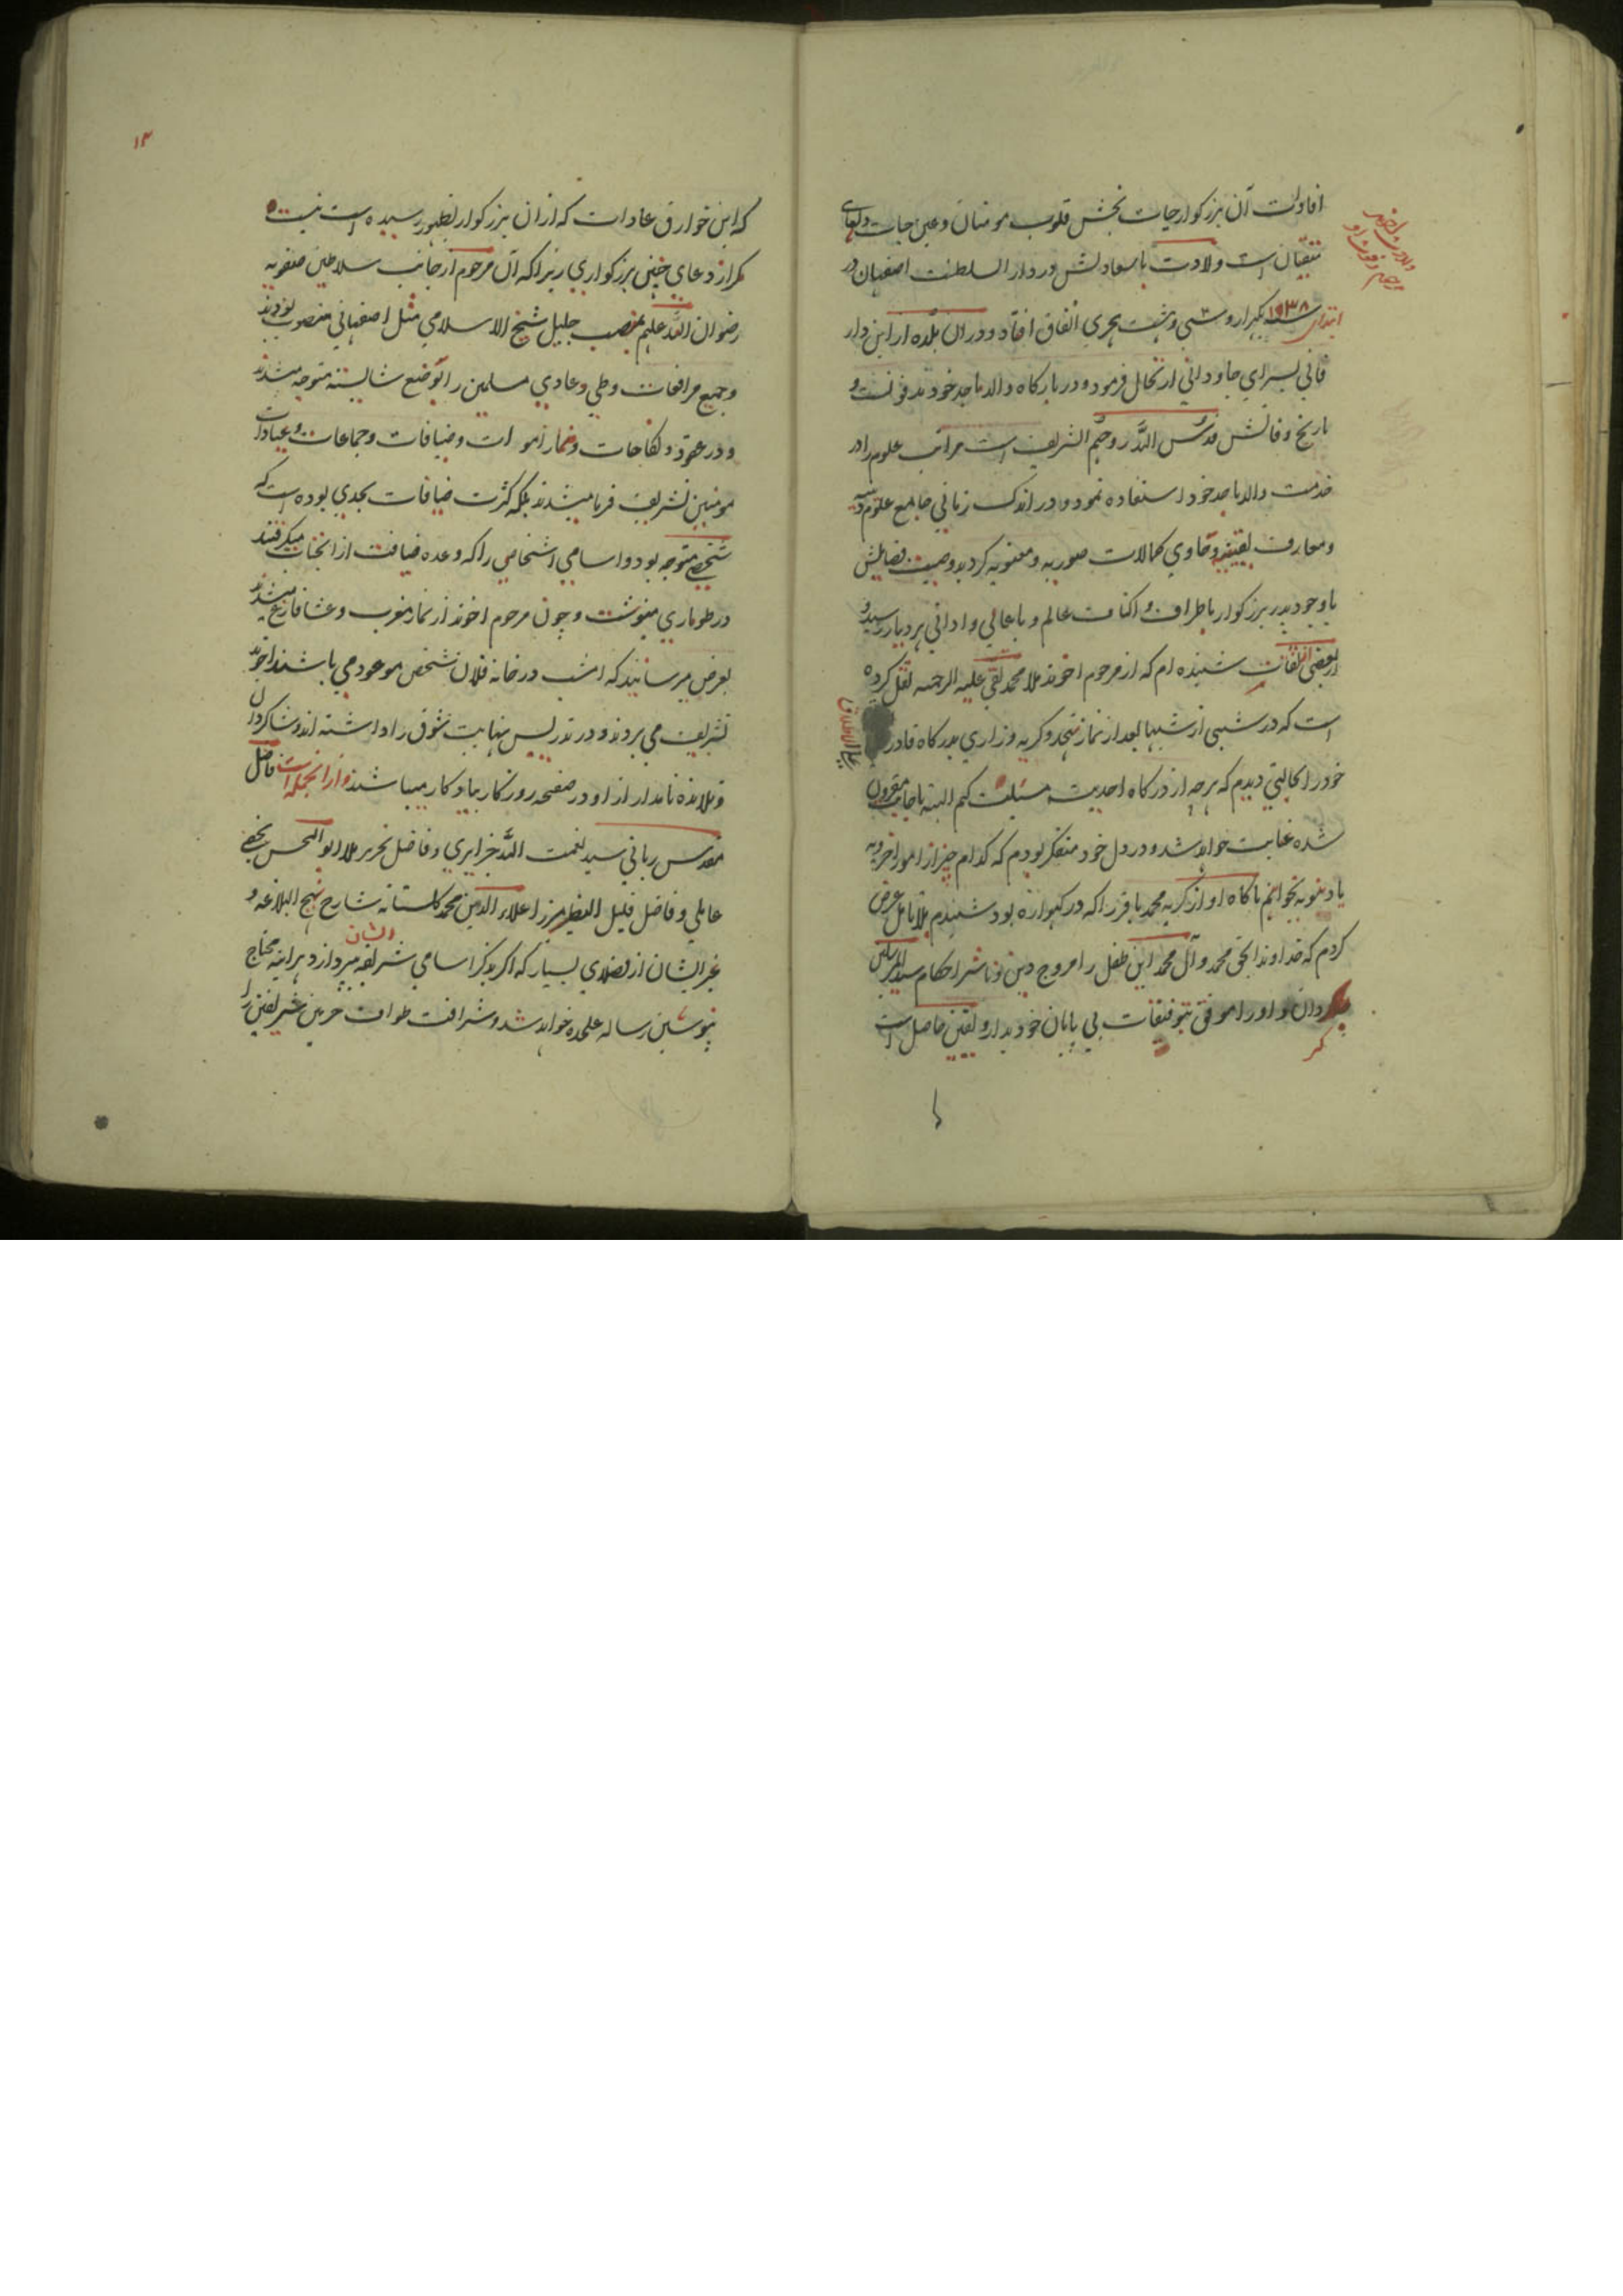 افاولت آن بزرگوار حیات بخش قلوب مومنان و عین حیات
متقیان است ولادت با سعادتش در دار السلطنت اصفهان در
ابتدای سنه ۱۰۳۸ یکهزار و سی و هشت هجری اتفاق افتاد و در ان بلده از این دار
فانی بسرای جاودانی ارتحال فرمود و در بارگاه والد ماجد خود مدفونست و
تاریخ وفاتش قدس الله روحهم الشریف است مراتب علوم را در
خدمت والد ماجد خود استفاده نمود و در اندک زمانی جامع علوم دینیه
و معارف یقینیه و حاوی کمالات صوریه و معنویه گردید و صیت فضایلش
باوجود پدر بزرگوار باطراف و اکناف عالم و باعالی و ادانی هر دیار رسید و
از بعضی ثقات شنیده ام که از مرحوم اخوند ملا محمد تقی علیه الرحمه نقل کرده
است که در شبی از شبها بعد از نماز تهجد و گریه و زاری بدرگاه قادر
علی الاطلاق
خود را بحالتی دیدم که هرچه از درگاه احدیت مسئلت کنم البته باجابت مقرون
شده عنایت خواهد شد و در دل خود متفکر بودم که کدام چیز از امور اخرویه
یا دنیویه بخواهم ناگاه اواز گریه محمد باقر را که در گهواره بود شنیدم بلا تامل عرض
کردم که خداوندا بحق محمد و آل محمد این طفل را مروج دین و ناشر احکام سید المرسلین
گردان و او را موفق بتوفیقات بی پایان خود بدار و یقین حاصل است
۱۳
که این خوارق عادات که از ان بزرگوار بظهور رسیده است نیست
مگر از دعای چنین بزرگواری زیرا که آن مرحوم از جانب سلاطین صفویه
رضوان الله علیهم بمنصب جلیل شیخ الاسلامی مثل اصفهانی منصوب بودند
و جمیع مرافعات و طی دعاوی مسلمین را بوضع شایسته متوجه میشدند
و در عقود و نکاحات و نماز اموات و ضیافات و جماعات و عیادات
مومنین تشریف فرما میشدند بلکه کثرت ضیافات بحدی بوده است که
شخصی متوجه بود و اسامی اشخاصی را که وعده ضیافت از انجناب میگرفتند
در طوماری مینوشت و چون مرحوم اخوند از نماز مغرب و عشا فارغ میشدند
بعرض میرسانید که امشب در خانه فلان شخص موعود می باشند اخوند
تشریف می بردند و در تدریس نهایت شوق را داشته اند و شاگردان
و تلامذه نامدار از او در صفحه روزگار بیادگار میباشند و از انجمله است فاضل
مقدس ربانی سید نعمت الله جزایری و فاضل نحریر ملا ابو الحسن نجفی
عاملی و فاضل قلیل النظیر میرزا علاء الدین محمد گلستانه شارح نهج البلاغه و
غیر ایشان از فضلای بسیار که اگر بذکر اسامی شریفه ایشان پردازد هراینه محتاج
بنوشتن رساله علیحده خواهد شد و شرافت طواف حرمین شریفین را